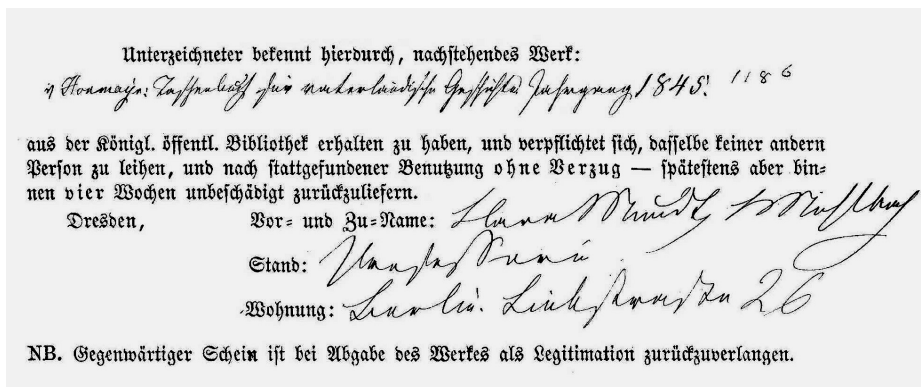 Unterzeichneter bekennt hierdurch, nachstehendes Werk:
v Hormayr: Taschenbuch für vaterländische Geschichte Jahrgang 1845. 1186
aus der Königl. öffentl. Bibliothek erhalten zu haben, und verpflichtet sich, dasselbe keiner andern
Person zu leihen, und nach stattgefundener Benutzung ohne Verzug — spätestens aber bin-
nen vier Wochen unbeschädigt zurückzuliefern.
Dresden, Vor- und Zu-Name: Clara Mundt Mühlbach
Stand: Professorin
Wohnung: Berlin. Linkstraße 26
NB. Gegenwärtiger Schein ist bei Abgabe des Werkes als Legitimation zurückzuverlangen.